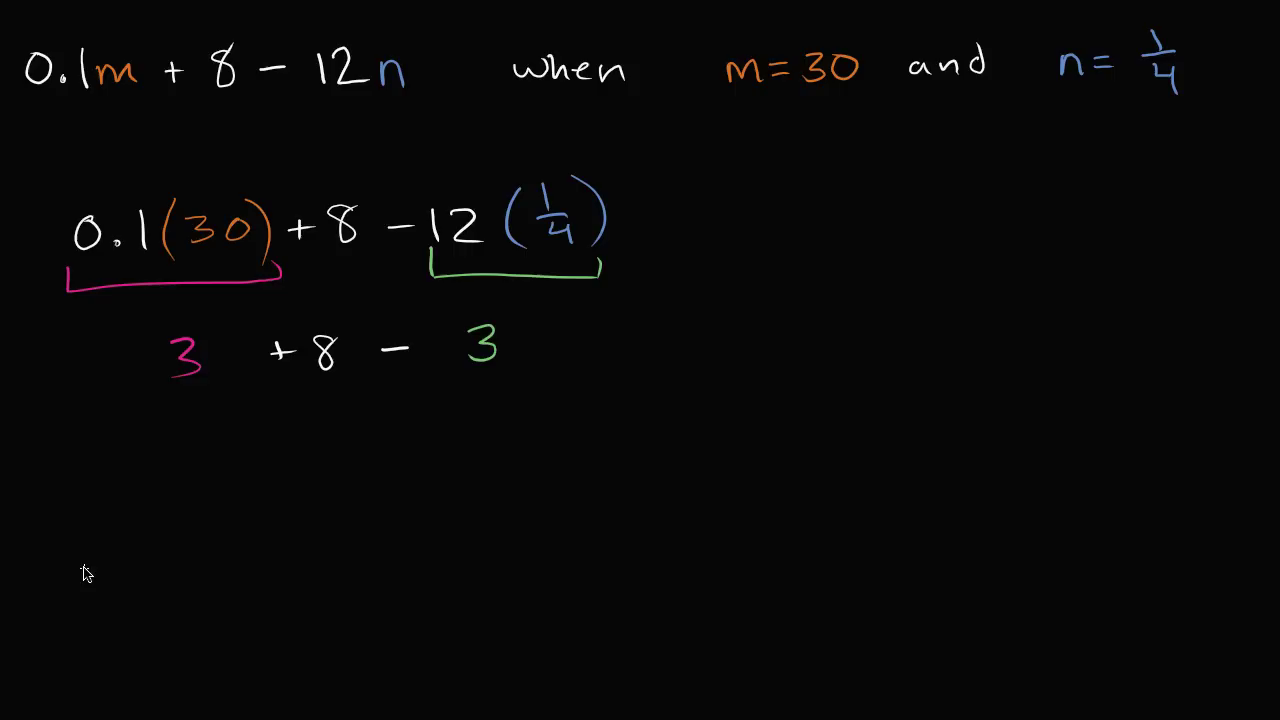 0.1m + 8 - 12n when m = 30 and n = 1/4
0.1(30) + 8 - 12(1/4)
3 + 8 - 3